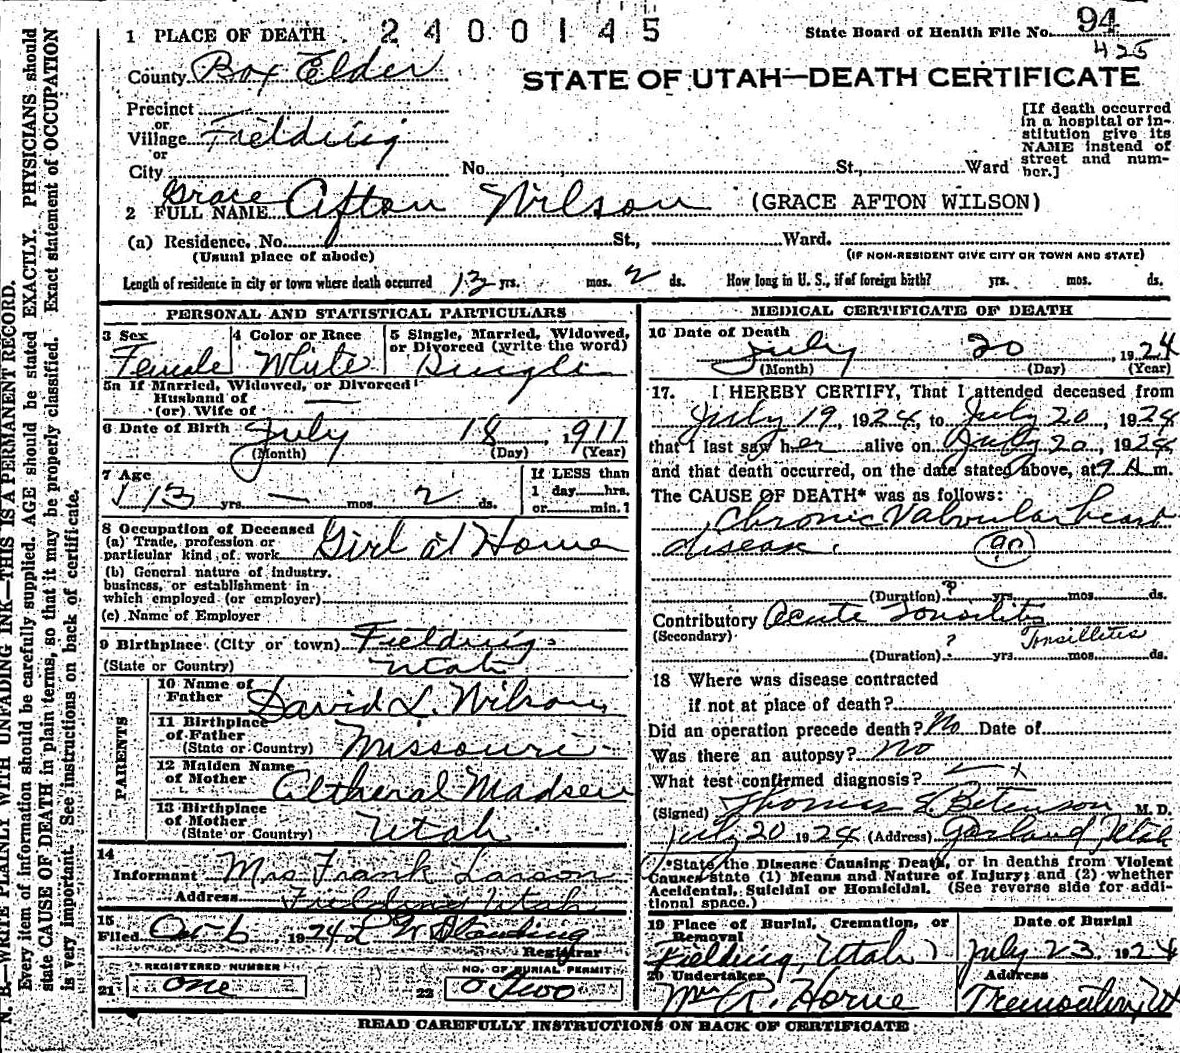 1 PLACE OF DEATH 2400145 State Board of Health File No. 94
425
County Box Elder
STATE OF UTAH—DEATH CERTIFICATE
Precinct
or
Village Fielding
or
City No. St., Ward
[If death occurred
in a hospital or in-
stitution give its
NAME instead of
street and num-
ber.]
2 FULL NAME Grace Afton Wilson (GRACE AFTON WILSON)
(a) Residence. No. St., Ward.
(Usual place of abode) (IF NON-RESIDENT GIVE CITY OR TOWN AND STATE)
Length of residence in city or town where death occurred 13 yrs. mos. 2 ds. How long in U. S., if of foreign birth? yrs. mos. ds.
PERSONAL AND STATISTICAL PARTICULARS
3 Sex 4 Color or Race 5 Single, Married, Widowed,
or Divorced (write the word)
Female White Single
5a If Married, Widowed, or Divorced
Husband of
(or) Wife of —
6 Date of Birth July 18, 1911
(Month) (Day) (Year)
7 Age
13 yrs. — mos. 2 ds.
If LESS than
1 day hrs.
or min.?
8 Occupation of Deceased
(a) Trade, profession or
particular kind of work Girl at Home
(b) General nature of industry,
business, or establishment in
which employed (or employer)
(c) Name of Employer
9 Birthplace (City or town) Fielding
(State or Country) Utah
PARENTS
10 Name of
Father David L. Wilson
11 Birthplace
of Father
(State or Country) Missouri
12 Maiden Name
of Mother Madsen
13 Birthplace
of Mother
(State or Country) Utah
14
Informant Mrs Frank Larson
Address Fielding Utah
15
Filed 1924
Registrar
REGISTERED NUMBER
21 One
NO. OF BURIAL PERMIT
22 Two
MEDICAL CERTIFICATE OF DEATH
16 Date of Death
July 20, 1924
(Month) (Day) (Year)
17. I HEREBY CERTIFY, That I attended deceased from
July 19, 1924, to July 20, 1924
that I last saw her alive on July 20, 1924
and that death occurred, on the date stated above, at 9 A m.
The CAUSE OF DEATH* was as follows:
Chronic Valvular heart
disease. 90
(Duration) ? yrs. mos. ds.
Contributory Acute Tonsilitis
(Secondary) Tonsillitis
(Duration) ? yrs. mos. ds.
18 Where was disease contracted
if not at place of death?
Did an operation precede death? No Date of
Was there an autopsy? No
What test confirmed diagnosis?
(Signed) Thomas E. Betenson M. D.
July 20 1924 (Address) Garland, Utah
*State the Disease Causing Death, or in deaths from Violent
Causes state (1) Means and Nature of Injury; and (2) whether
Accidental, Suicidal or Homicidal. (See reverse side for addi-
tional space.)
19 Place of Burial, Cremation, or
Removal Date of Burial
Fielding, Utah July 23, 1924
20 Undertaker Address
R. Horne Tremonton, Ut
READ CAREFULLY INSTRUCTIONS ON BACK OF CERTIFICATE
N. B.—WRITE PLAINLY WITH UNFADING INK—THIS IS A PERMANENT RECORD.
Every item of information should be carefully supplied. AGE should be stated EXACTLY. PHYSICIANS should
state CAUSE OF DEATH in plain terms, so that it may be properly classified. Exact statement of OCCUPATION
is very important. See instructions on back of certificate.